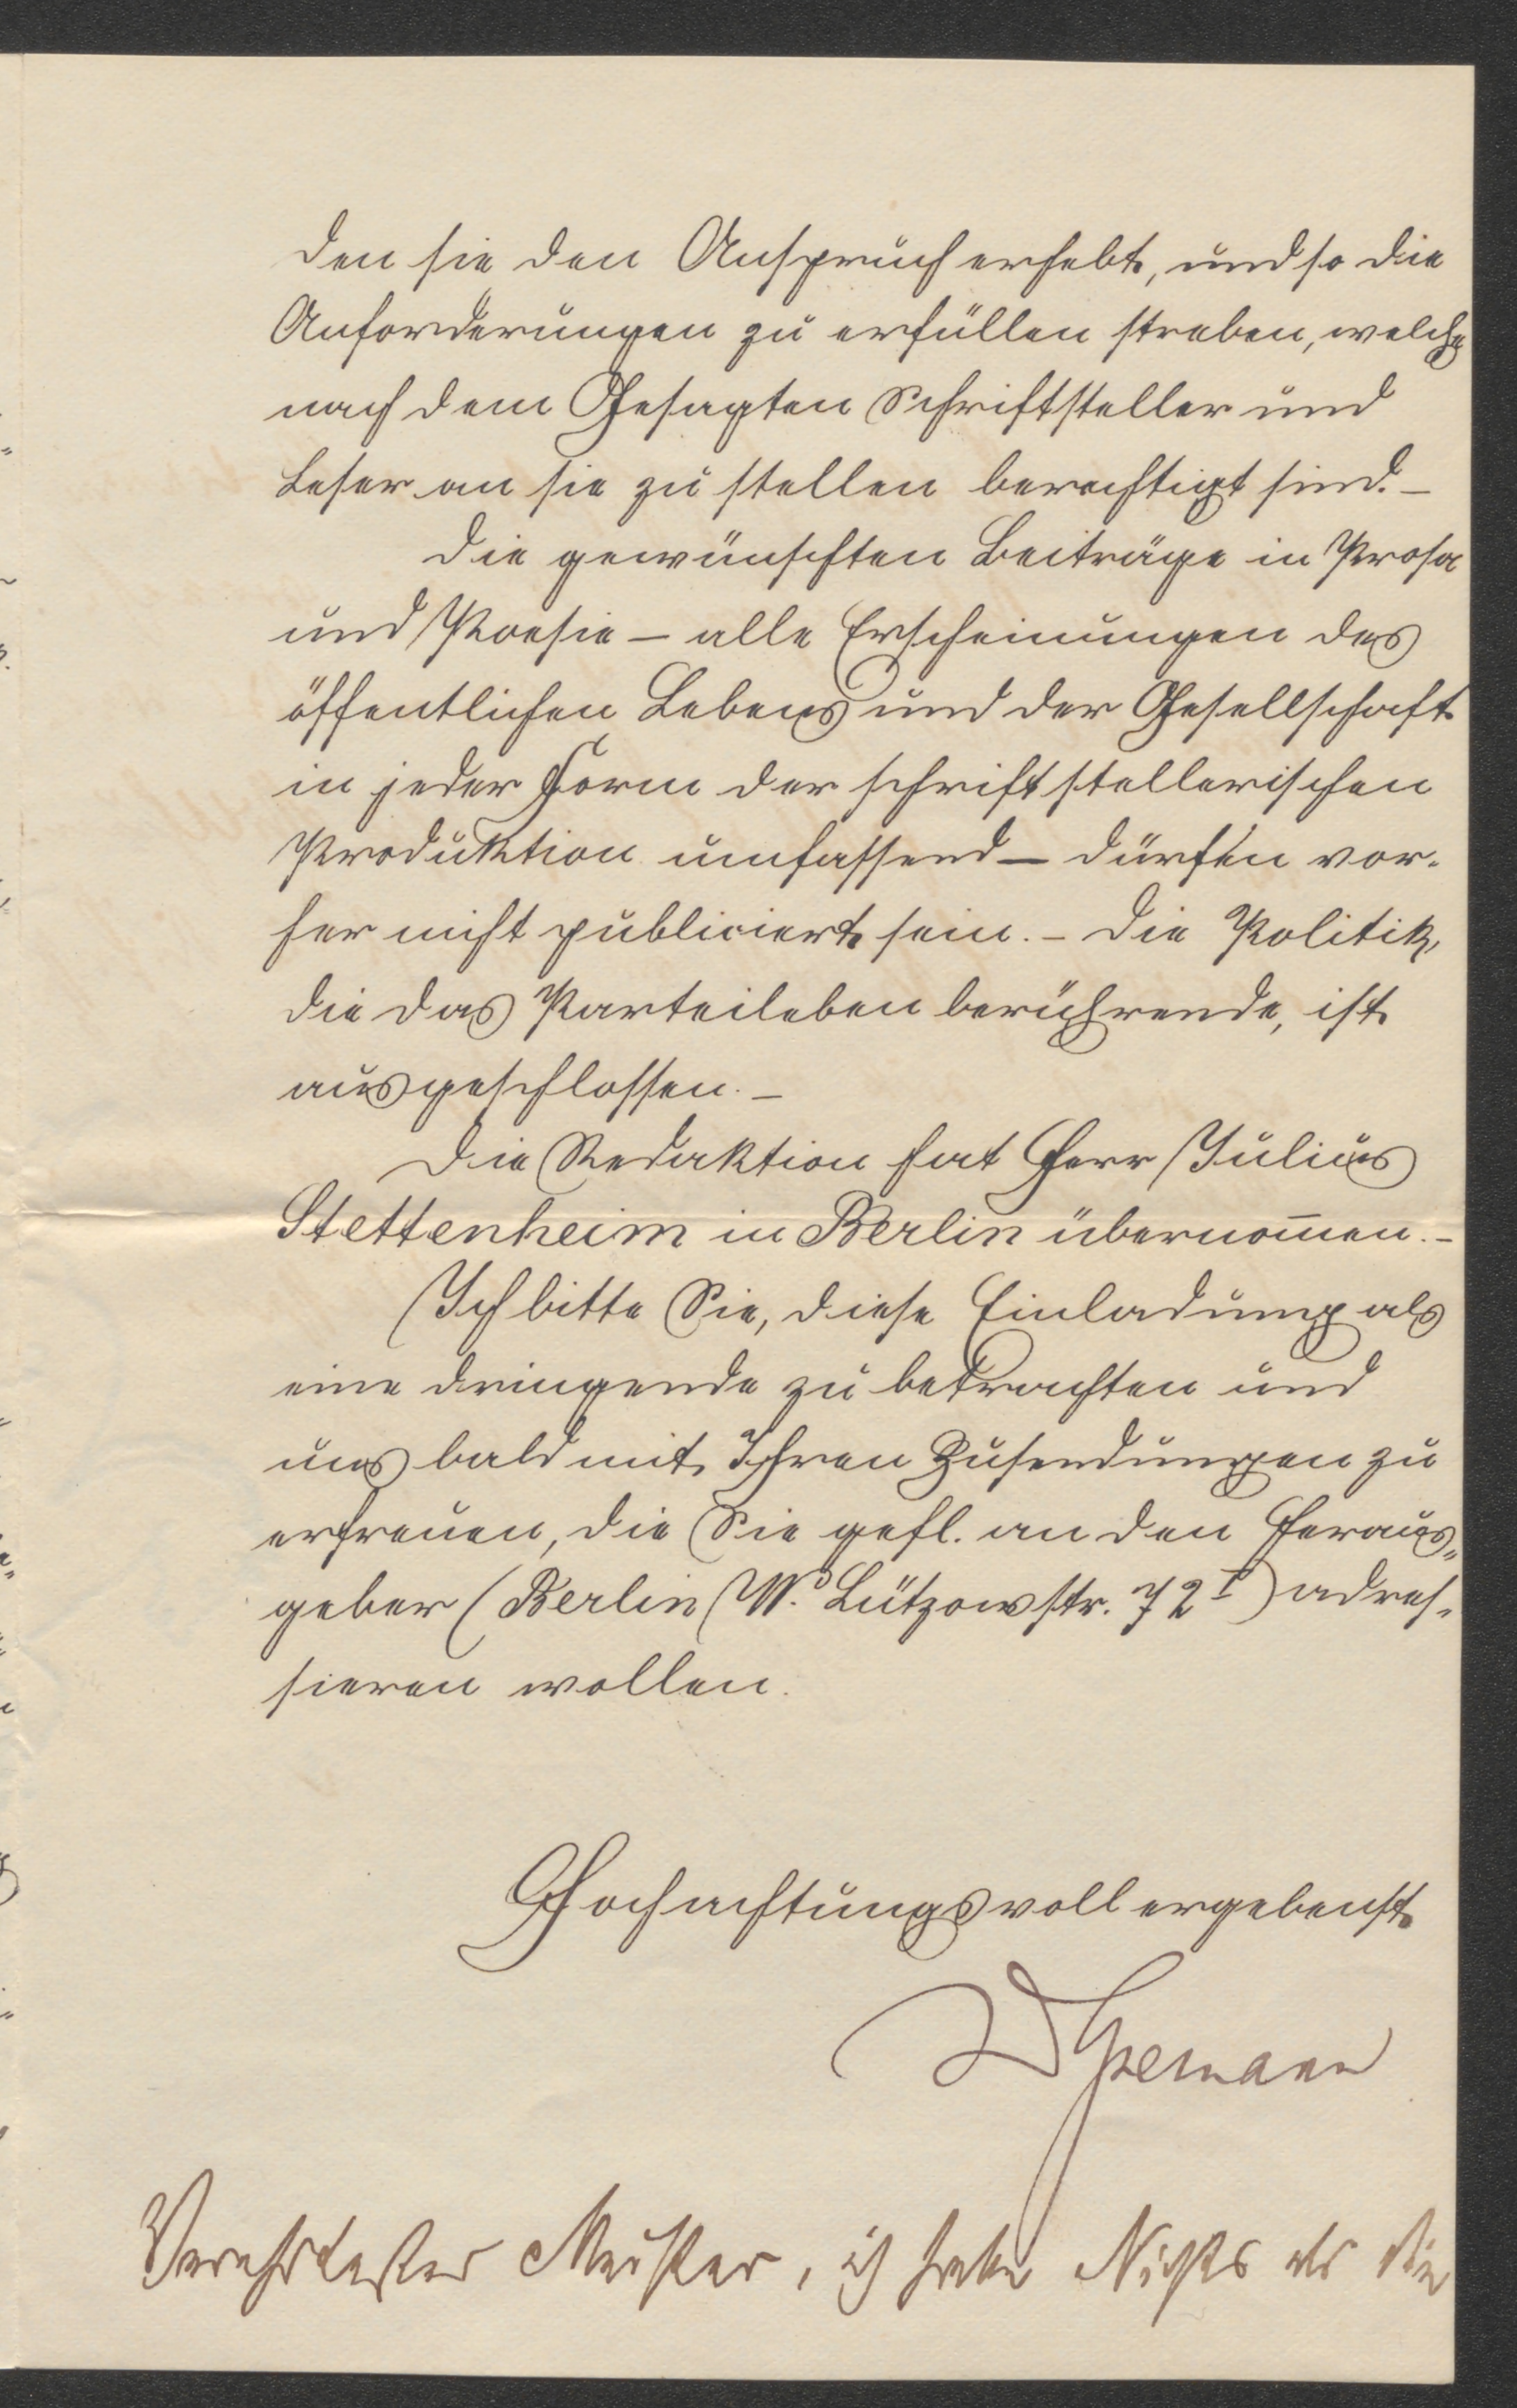 den sie den Anspruch erhebt, und so die
Anforderungen zu erfüllen streben, welche
nach dem Gesagten Schriftsteller und
Leser an sie zu stellen berechtigt sind. –
Die gewünschten Beiträge in Prosa
und Poesie – alle Erscheinungen des
öffentlichen Lebens und der Gesellschaft
in jeder Form der schriftstellerischen
Produktion umfassend – dürfen vor-
her nicht publiciert sein. – Die Politik,
die das Parteileben berührende, ist
ausgeschlossen. –
Die Redaktion hat Herr Julius
Stettenheim in Berlin übernom̄en. –
Ich bitte Sie, diese Einladung als
eine dringende zu betrachten und
uns bald mit Ihren Zusendungen zu
erfreuen, die Sie gefl. an den Heraus-
geber (Berlin W. Lützowstr. 72 I) adres-
sieren wollen.
Hochachtungsvoll ergebenst
W Spemann
Verehrtester Meister, ich habe Nichts als die